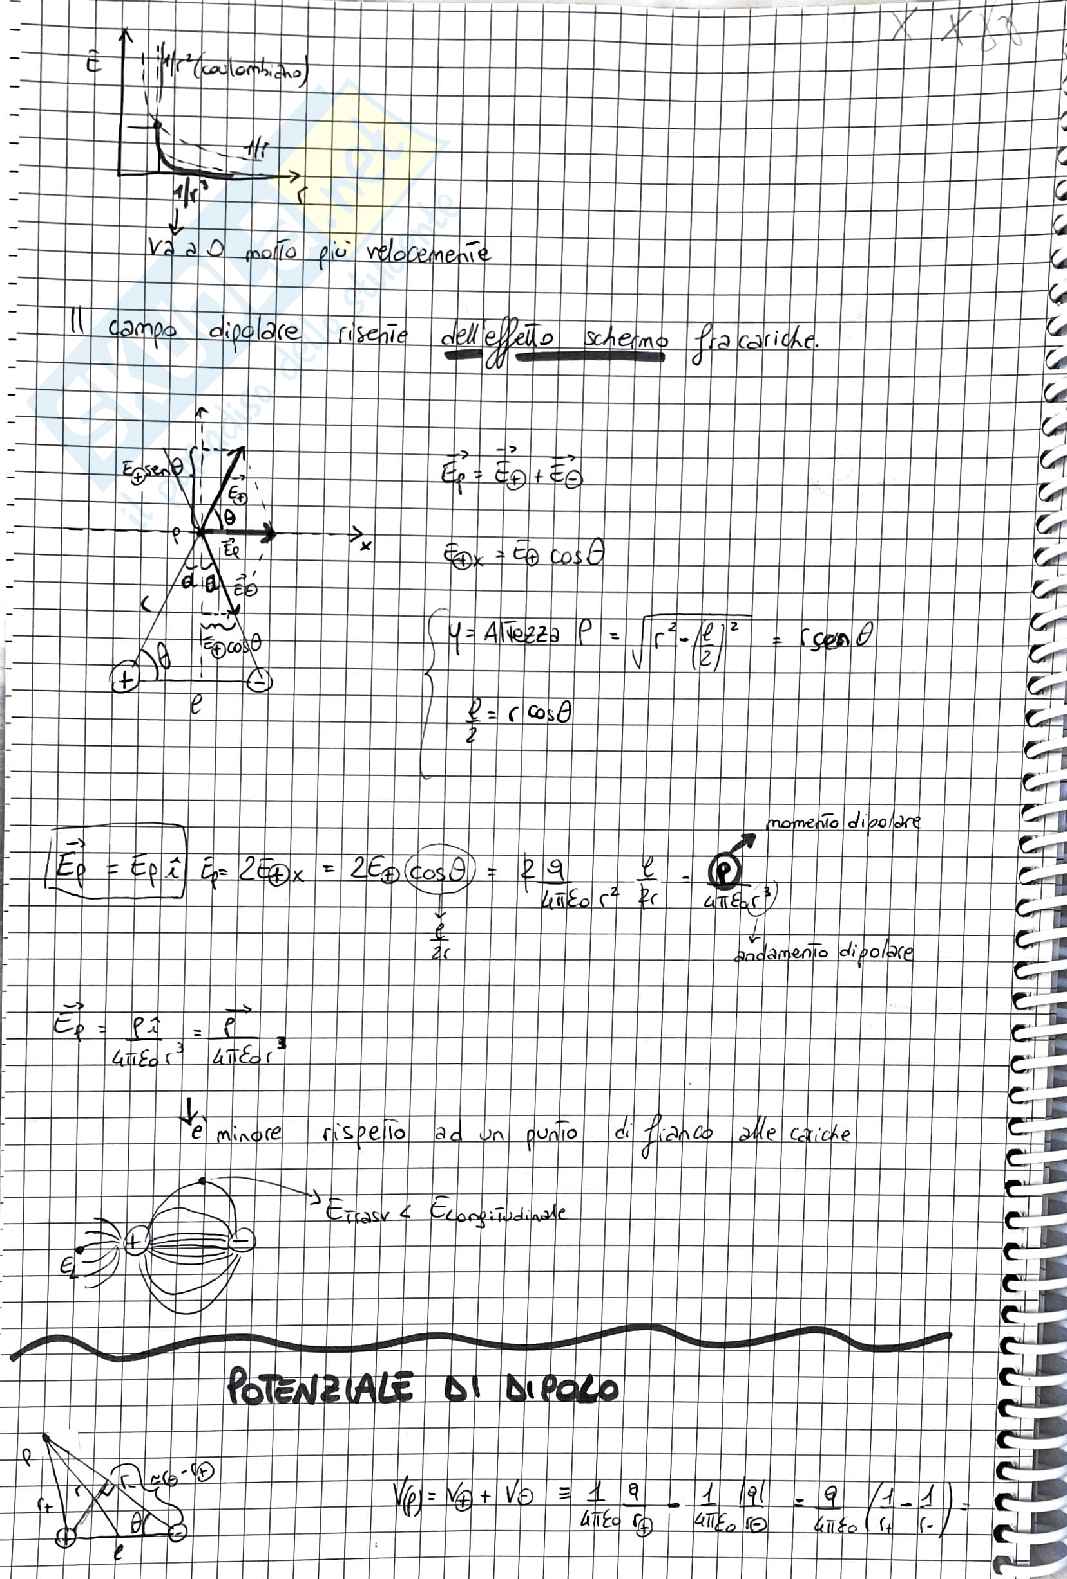 E
1/r² (coulombiano)
1/r
r
1/r³
va a 0 molto più velocemente
Il campo dipolare risente dell'effetto schermo fra cariche.
E⊕ senθ
E⊕
θ
P
x
Ep
E⊖
r
E⊕ cosθ
θ
+
-
l
Ep = E⊕ + E⊖
E⊕x = E⊕ cosθ
y = Altezza P = √(r² - (l/2)²) = r senθ
l/2 = r cosθ
momento dipolare
Ep = Ep î Ep = 2E⊕x = 2E⊕ cosθ = 2 q/4πε₀r² l/2r = P/4πε₀r³
l/2r
andamento dipolare
Ep = p î/4πε₀r³ = p/4πε₀r³
è minore rispetto ad un punto di fianco alle cariche
Etrasv < Elongitudinale
+
-
EL
POTENZIALE DI DIPOLO
P
r+
r
r-
θ
+
-
l
V(p) = V⊕ + V⊖ = 1/4πε₀ q/r⊕ - 1/4πε₀ |q|/r⊖ = q/4πε₀ (1/r+ - 1/r-) =
SKUOLA.net
il paradiso dello studente